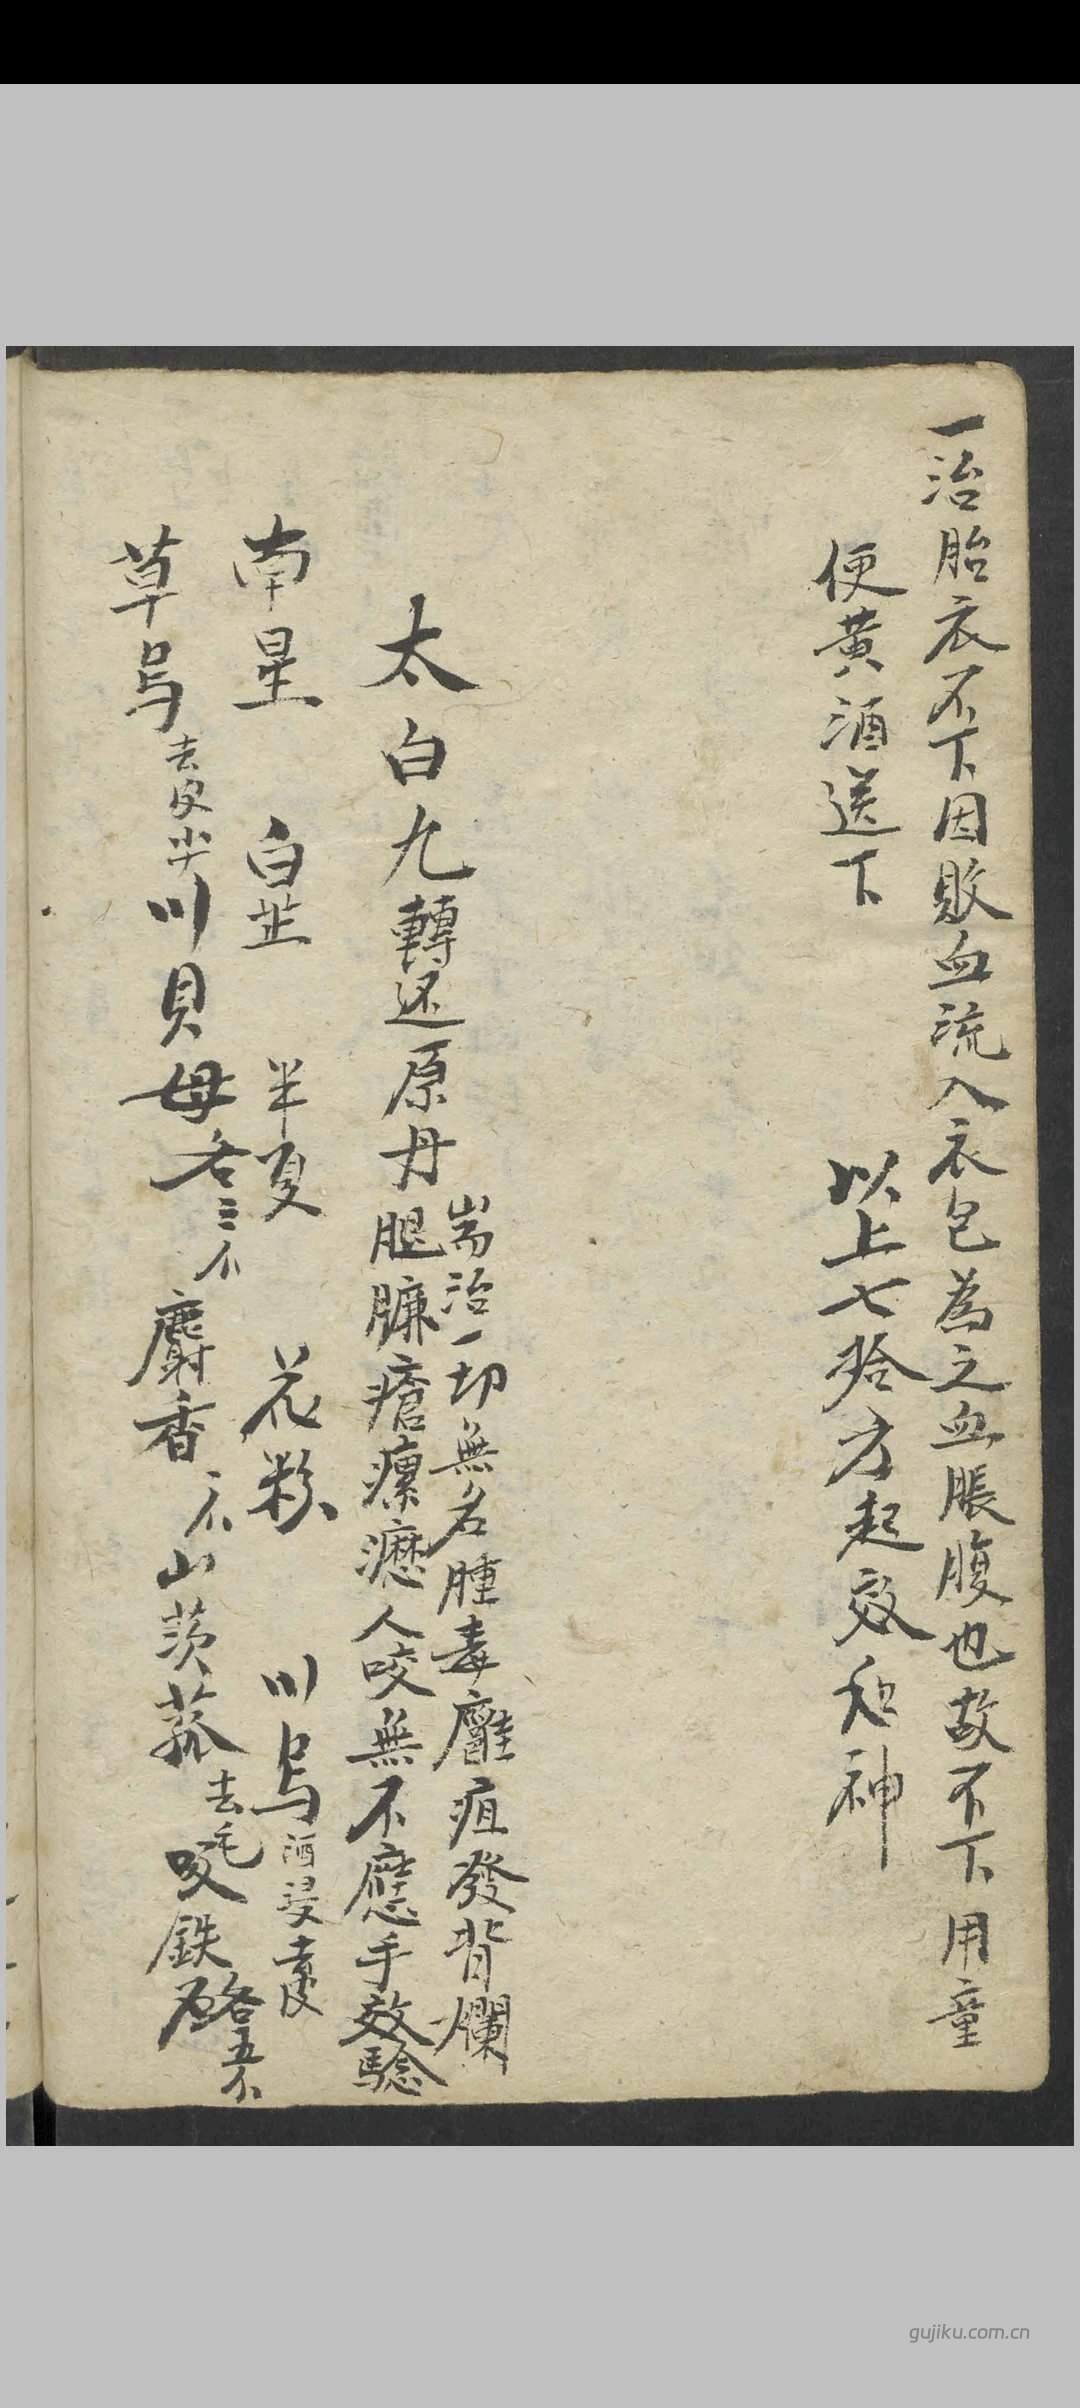 一治胎衣不下因敗血流入衣包為之血脹腹也故不下用童
便黃酒送下
以上七拾方起效如神
耑治一切無名腫毒癰疽發背爛
太白九轉还原丹腿臁瘡瘰癧人咬無不應手效驗
南星 白芷 半夏 花粉 川烏酒浸去皮
草烏去皮尖川貝母各三不麝香二不山茨菰去毛咬鉄石各五不
gujiku.com.cn